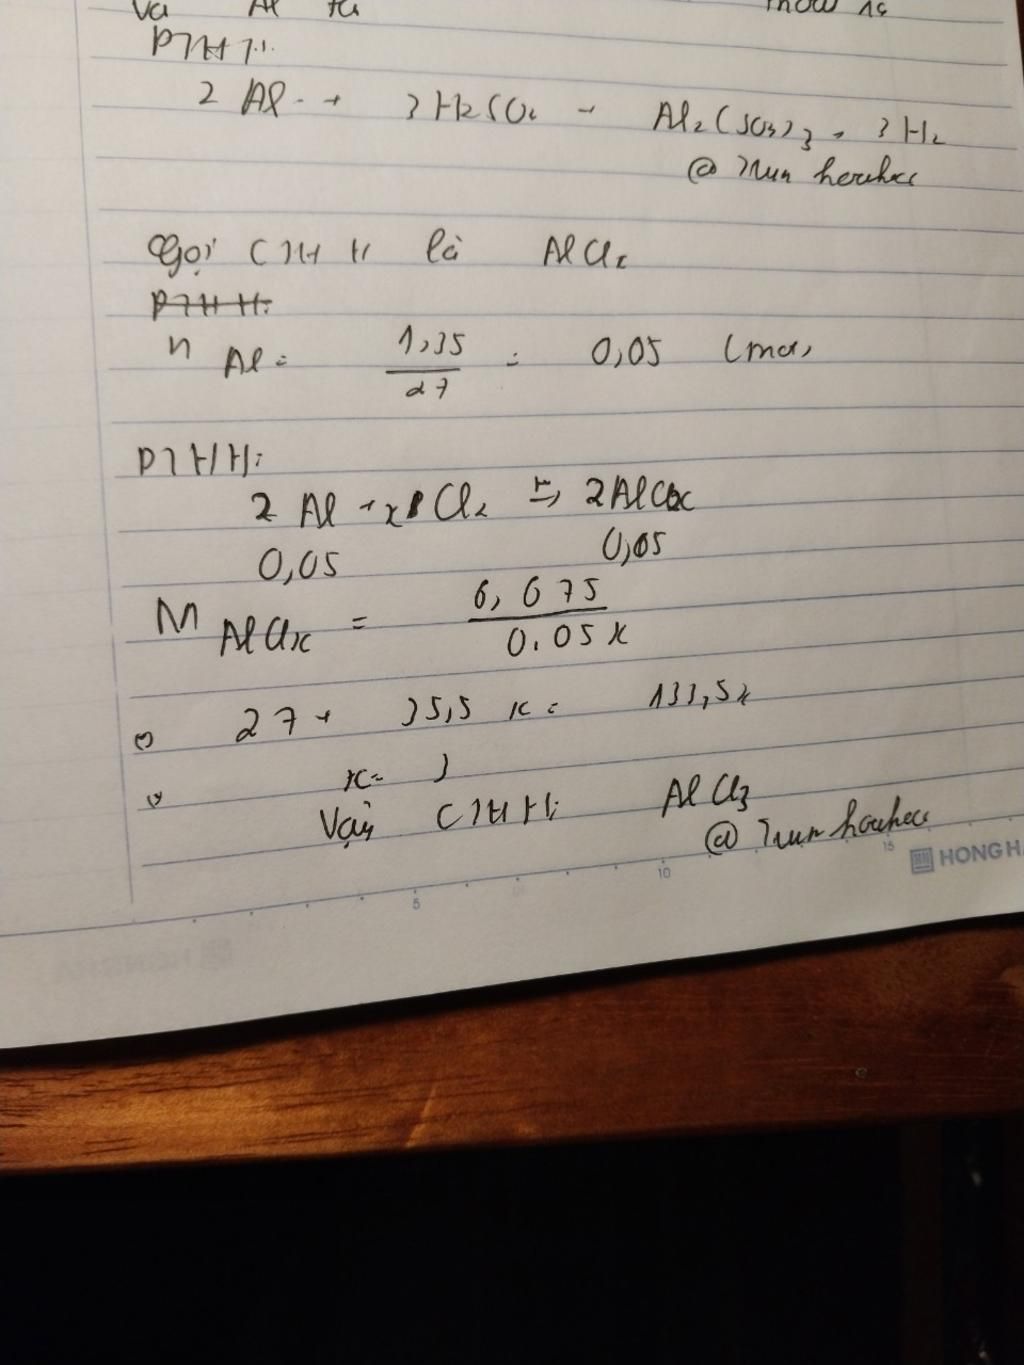 và Al
PTHH:
2 Al + 3 H2SO4 → Al2(SO4)3 + 3 H2
Gọi CTHH là AlClx
PTHH:
n Al = 1,35 / 27 = 0,05 (mol)
PTHH:
2 Al + x Cl2 → 2AlClx
0,05 0,05
M AlClx = 6,675 / 0.05x
27 + 35,5 x = 133,5x
x = 3
Vậy CTHH: AlCl3
5 10 15
HONG HA